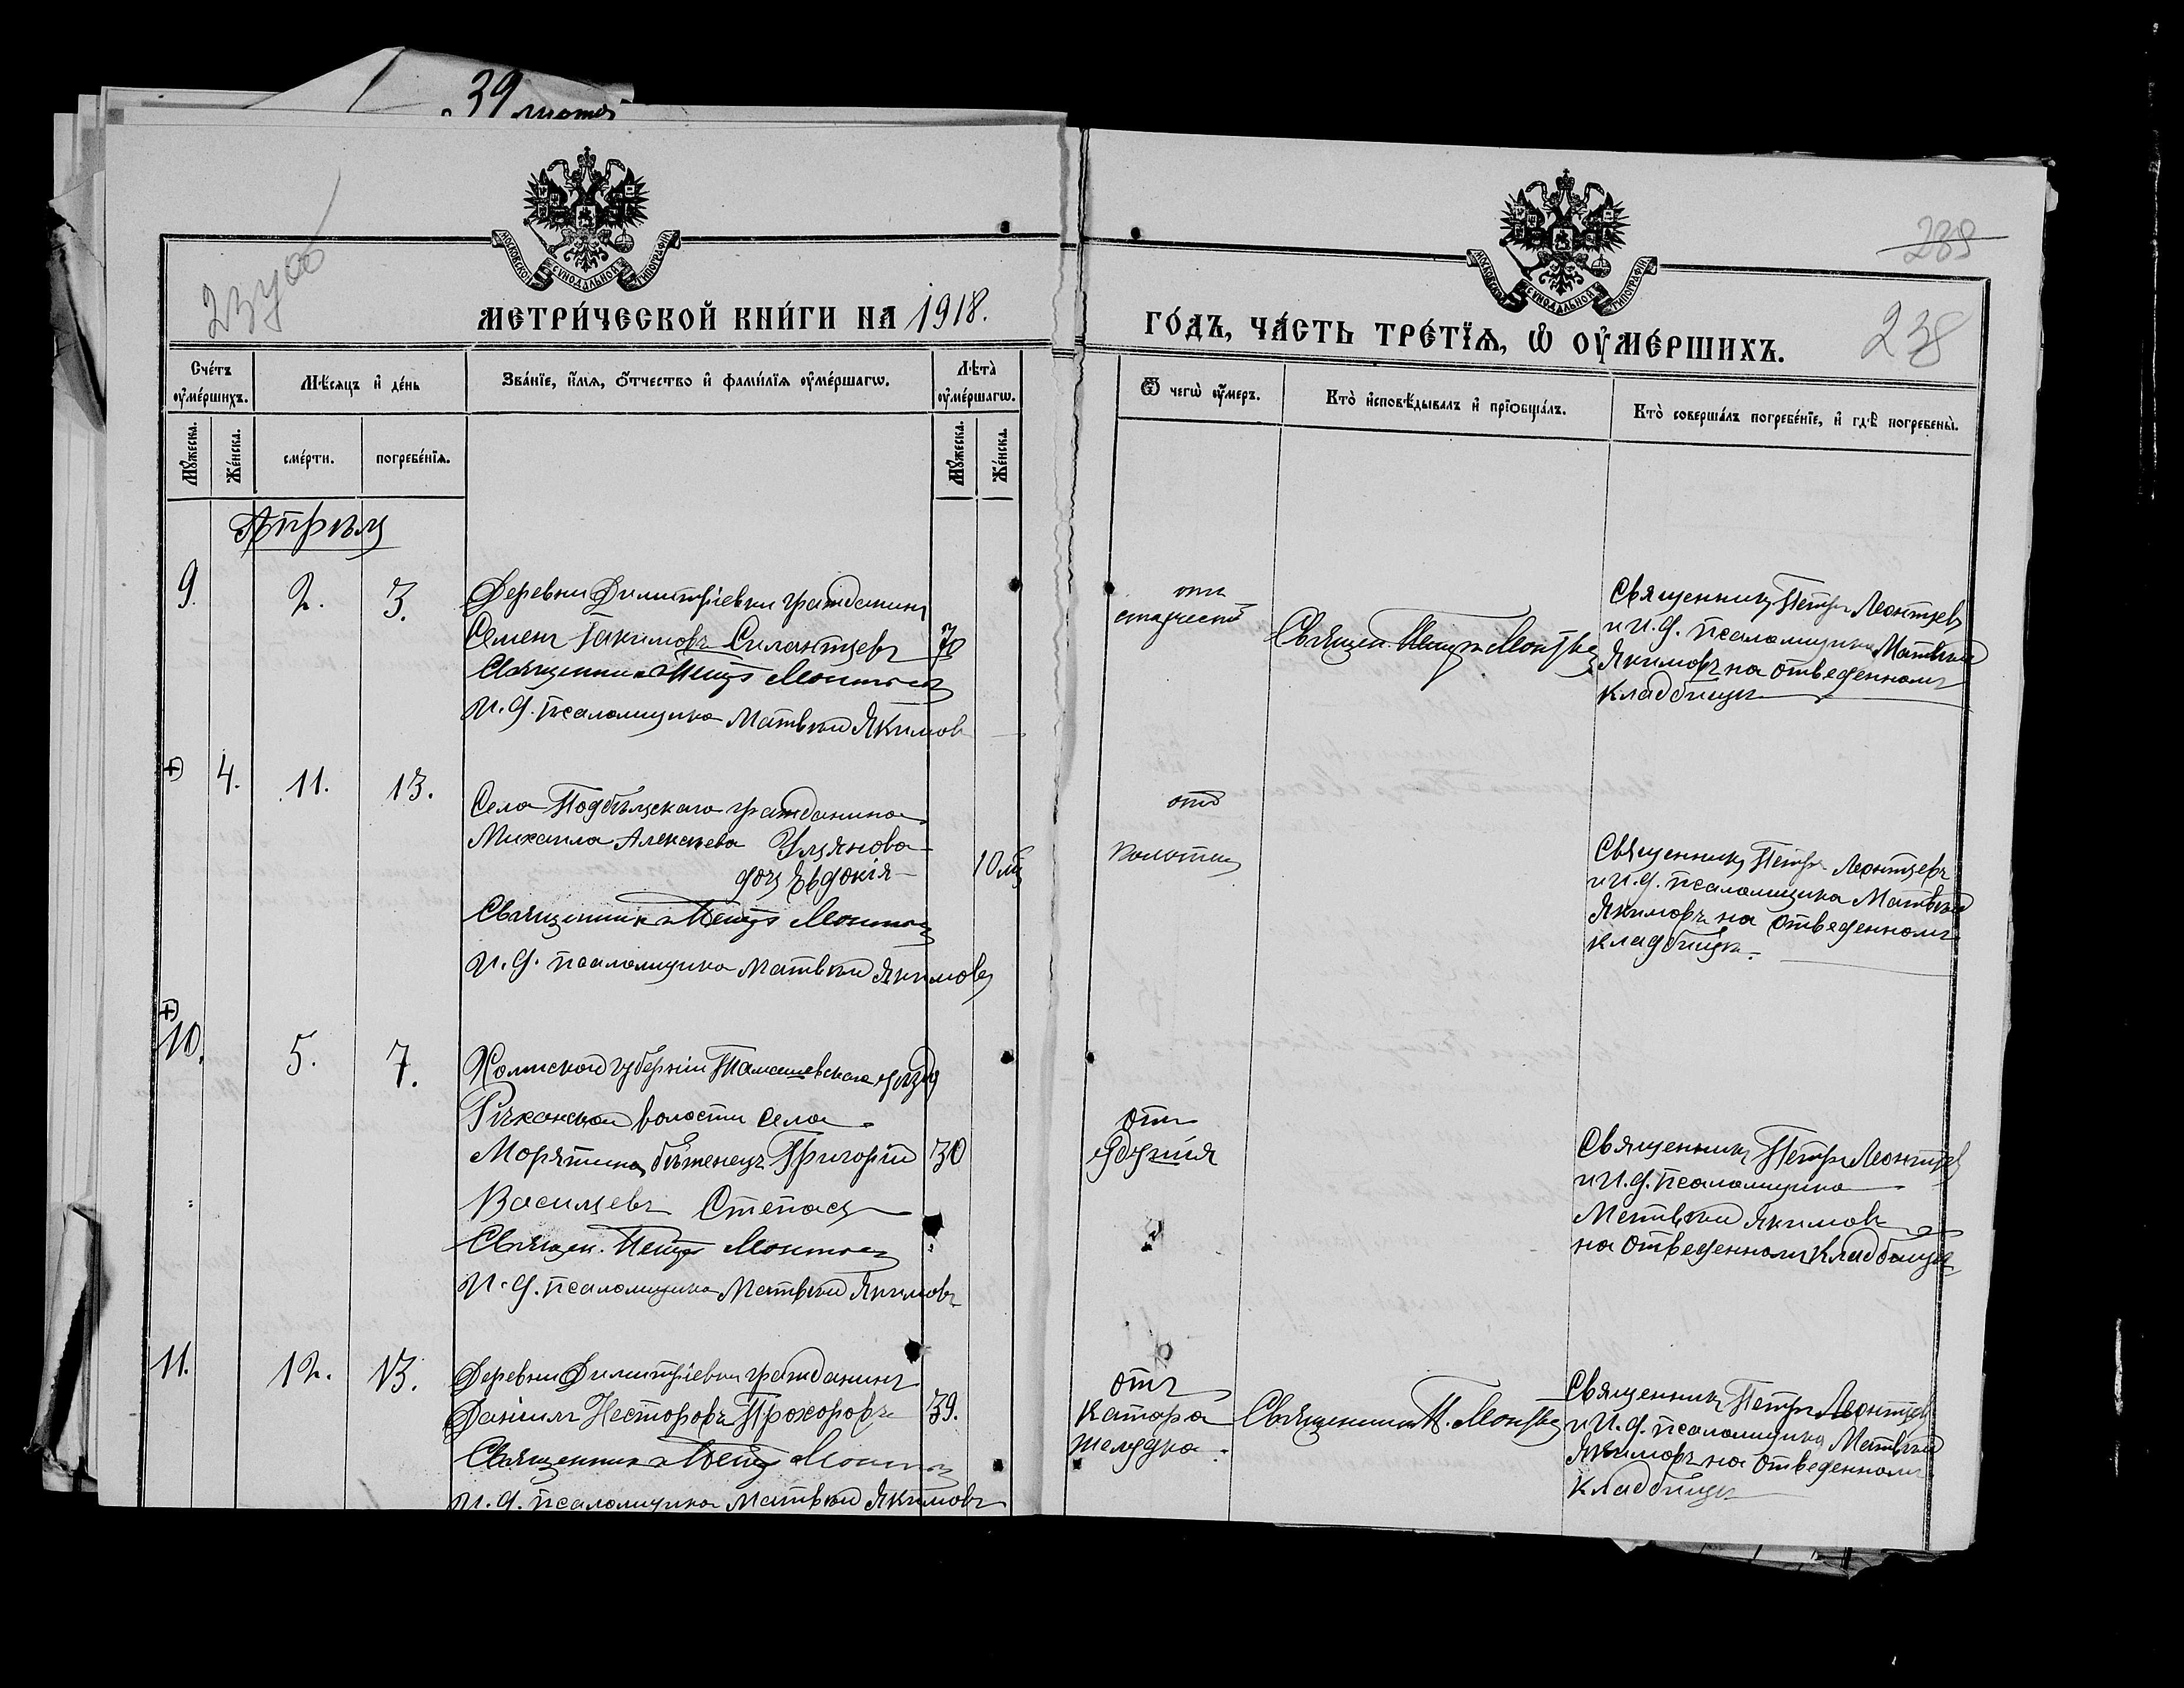 39 листъ
237об
МОСКОВСКОЙ СѴНОДАЛЬНОЙ ТИПОГРАФІИ
МЕТРИ́ЧЕСКОЙ КНИ́ГИ НА 1918.
Сче́тъ ᲂу҆ме́ршихъ.
Мѣ́сяцъ и҆ де́нь
Зва́нїе, и҆́мѧ, ѻ҆́тчество и҆ фами́лїѧ ᲂу҆ме́ршагѡ.
Лѣ́та ᲂу҆ме́ршагѡ.
Мꙋ́жеска.
Же́нска.
сме́рти.
погребе́нїѧ.
Мꙋ́жеска.
Же́нска.
Апрѣль
9. 2. 3. Деревни Димитріевки гражданинъ
Семенъ Іакимовъ Силантьевъ 70
Священникъ Петръ Леонтьев
И. д. псаломщика Матвѣй Якимов
4. 11. 13. Села Подбѣльскаго гражданина
Михаила Алексѣева Ульянова
дочь Евдокія 10 мц
Священникъ Петръ Леонтьев
И. д. псаломщика Матвѣй Якимовъ
10. 5. 7. Холмской губерніи Тамашевскаго уѣзда
волости села
бѣженецъ Григорій 30
Васильевъ Степась
Священ. Петръ Леонтьев
И. д. псаломщика Матвѣй Якимовъ
11. 12. 13. Деревни Димитріевки гражданинъ
Даніилъ Несторовъ Прохоровъ 39.
Священникъ Петръ Леонтьев
И. д. псаломщика Матвѣй Якимовъ
239
238
МОСКОВСКОЙ СѴНОДАЛЬНОЙ ТИПОГРАФІИ
ГО́ДЪ, ЧА́СТЬ ТРЕ́ТЇѦ, Ѡ҆ ОУ҆МЕ́РШИХЪ.
Ѿ чегѡ̀ ᲂу҆́меръ.
Кто̀ и҆сповѣ́дывалъ и҆ прїѻбща́лъ.
Кто̀ соверша́лъ погребе́нїе, и҆ гдѣ̀ погребены̀.
отъ
старости
Священ. Петръ Леонтьев
Священникъ Петръ Леонтьевъ
и И. д. псаломщика Матвѣй
Якимовъ на отведенномъ
кладбищѣ
отъ
Священникъ Петръ Леонтьевъ
и И. д. псаломщика Матвѣй
Якимовъ на отведенномъ
кладбищѣ.
отъ
Священникъ Петръ Леонтьевъ
и И. д. псаломщика
Матвѣй Якимовъ
на отведенномъ кладбищѣ
отъ
катара
желудка.
Священникъ П. Леонтьев
Священникъ Петръ Леонтьевъ
и И. д. псаломщика Матвѣй
Якимовъ на отведенномъ
кладбищѣ